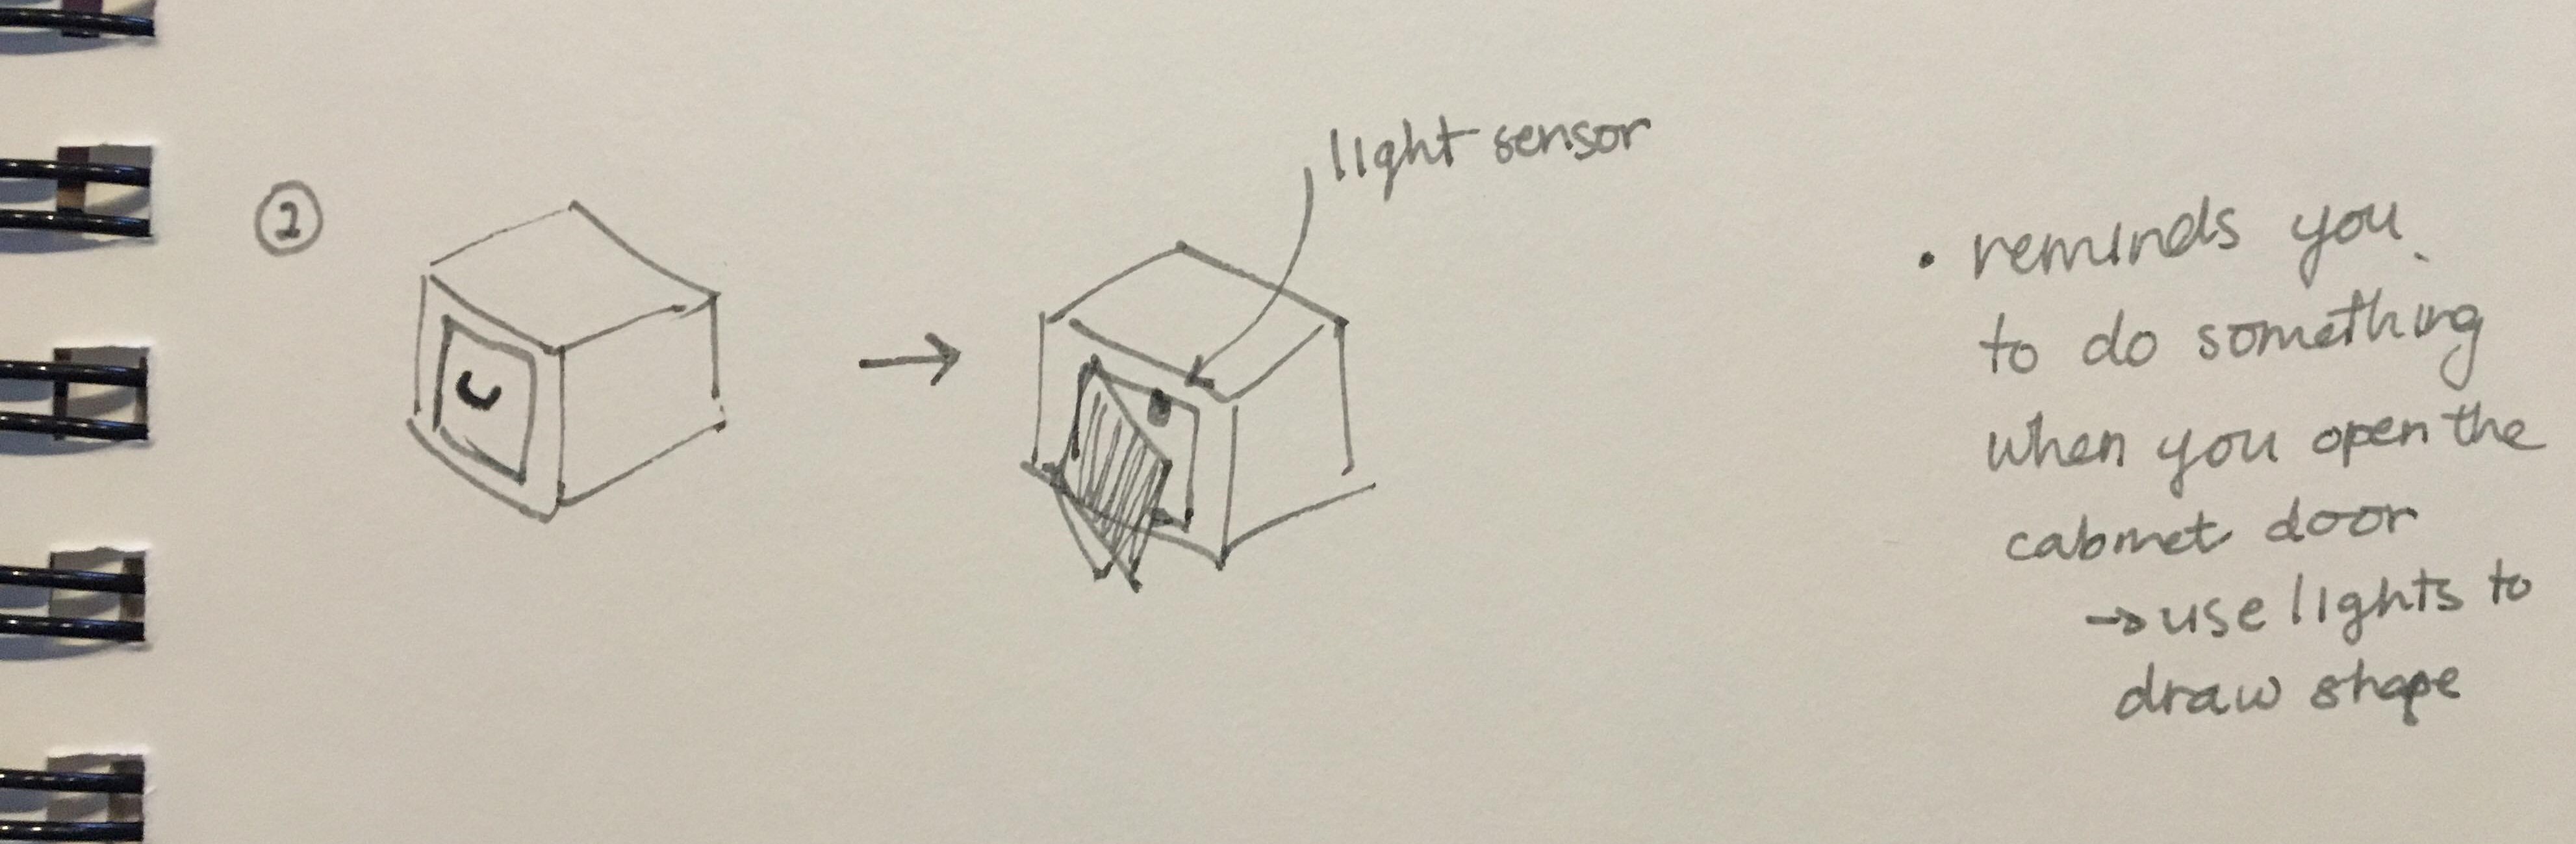 2
light sensor
• reminds you
to do something
when you open the
cabinet door
→ use lights to
draw shape